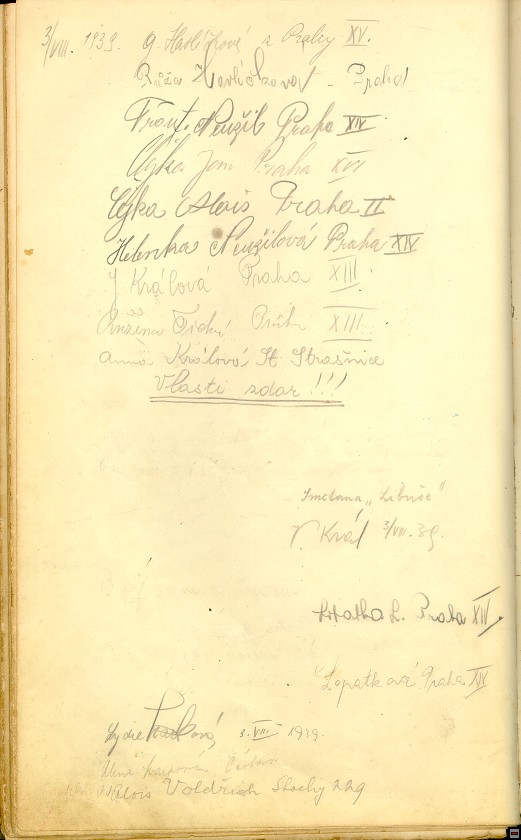 3/VIII. 1939. Havlíčková z Prahy XV.
Růža Havlíčková - Praha
Frant. Neužil Praha XIV
Čýka Jan Praha XVI
Čýka Alois Praha II
Helenka Neužilová Praha XIV
J Králová Praha XIII
Růžena Tichá XIII
Anna Králová St. Strašnice
Vlasti zdar!!!
Smetana „Libuše"
V. Král 3/VIII. 39.
L. Praha XIV
Lopatková Praha XIV
Lydie 3. VIII 1939.
Alois Voldřich Stochy 229